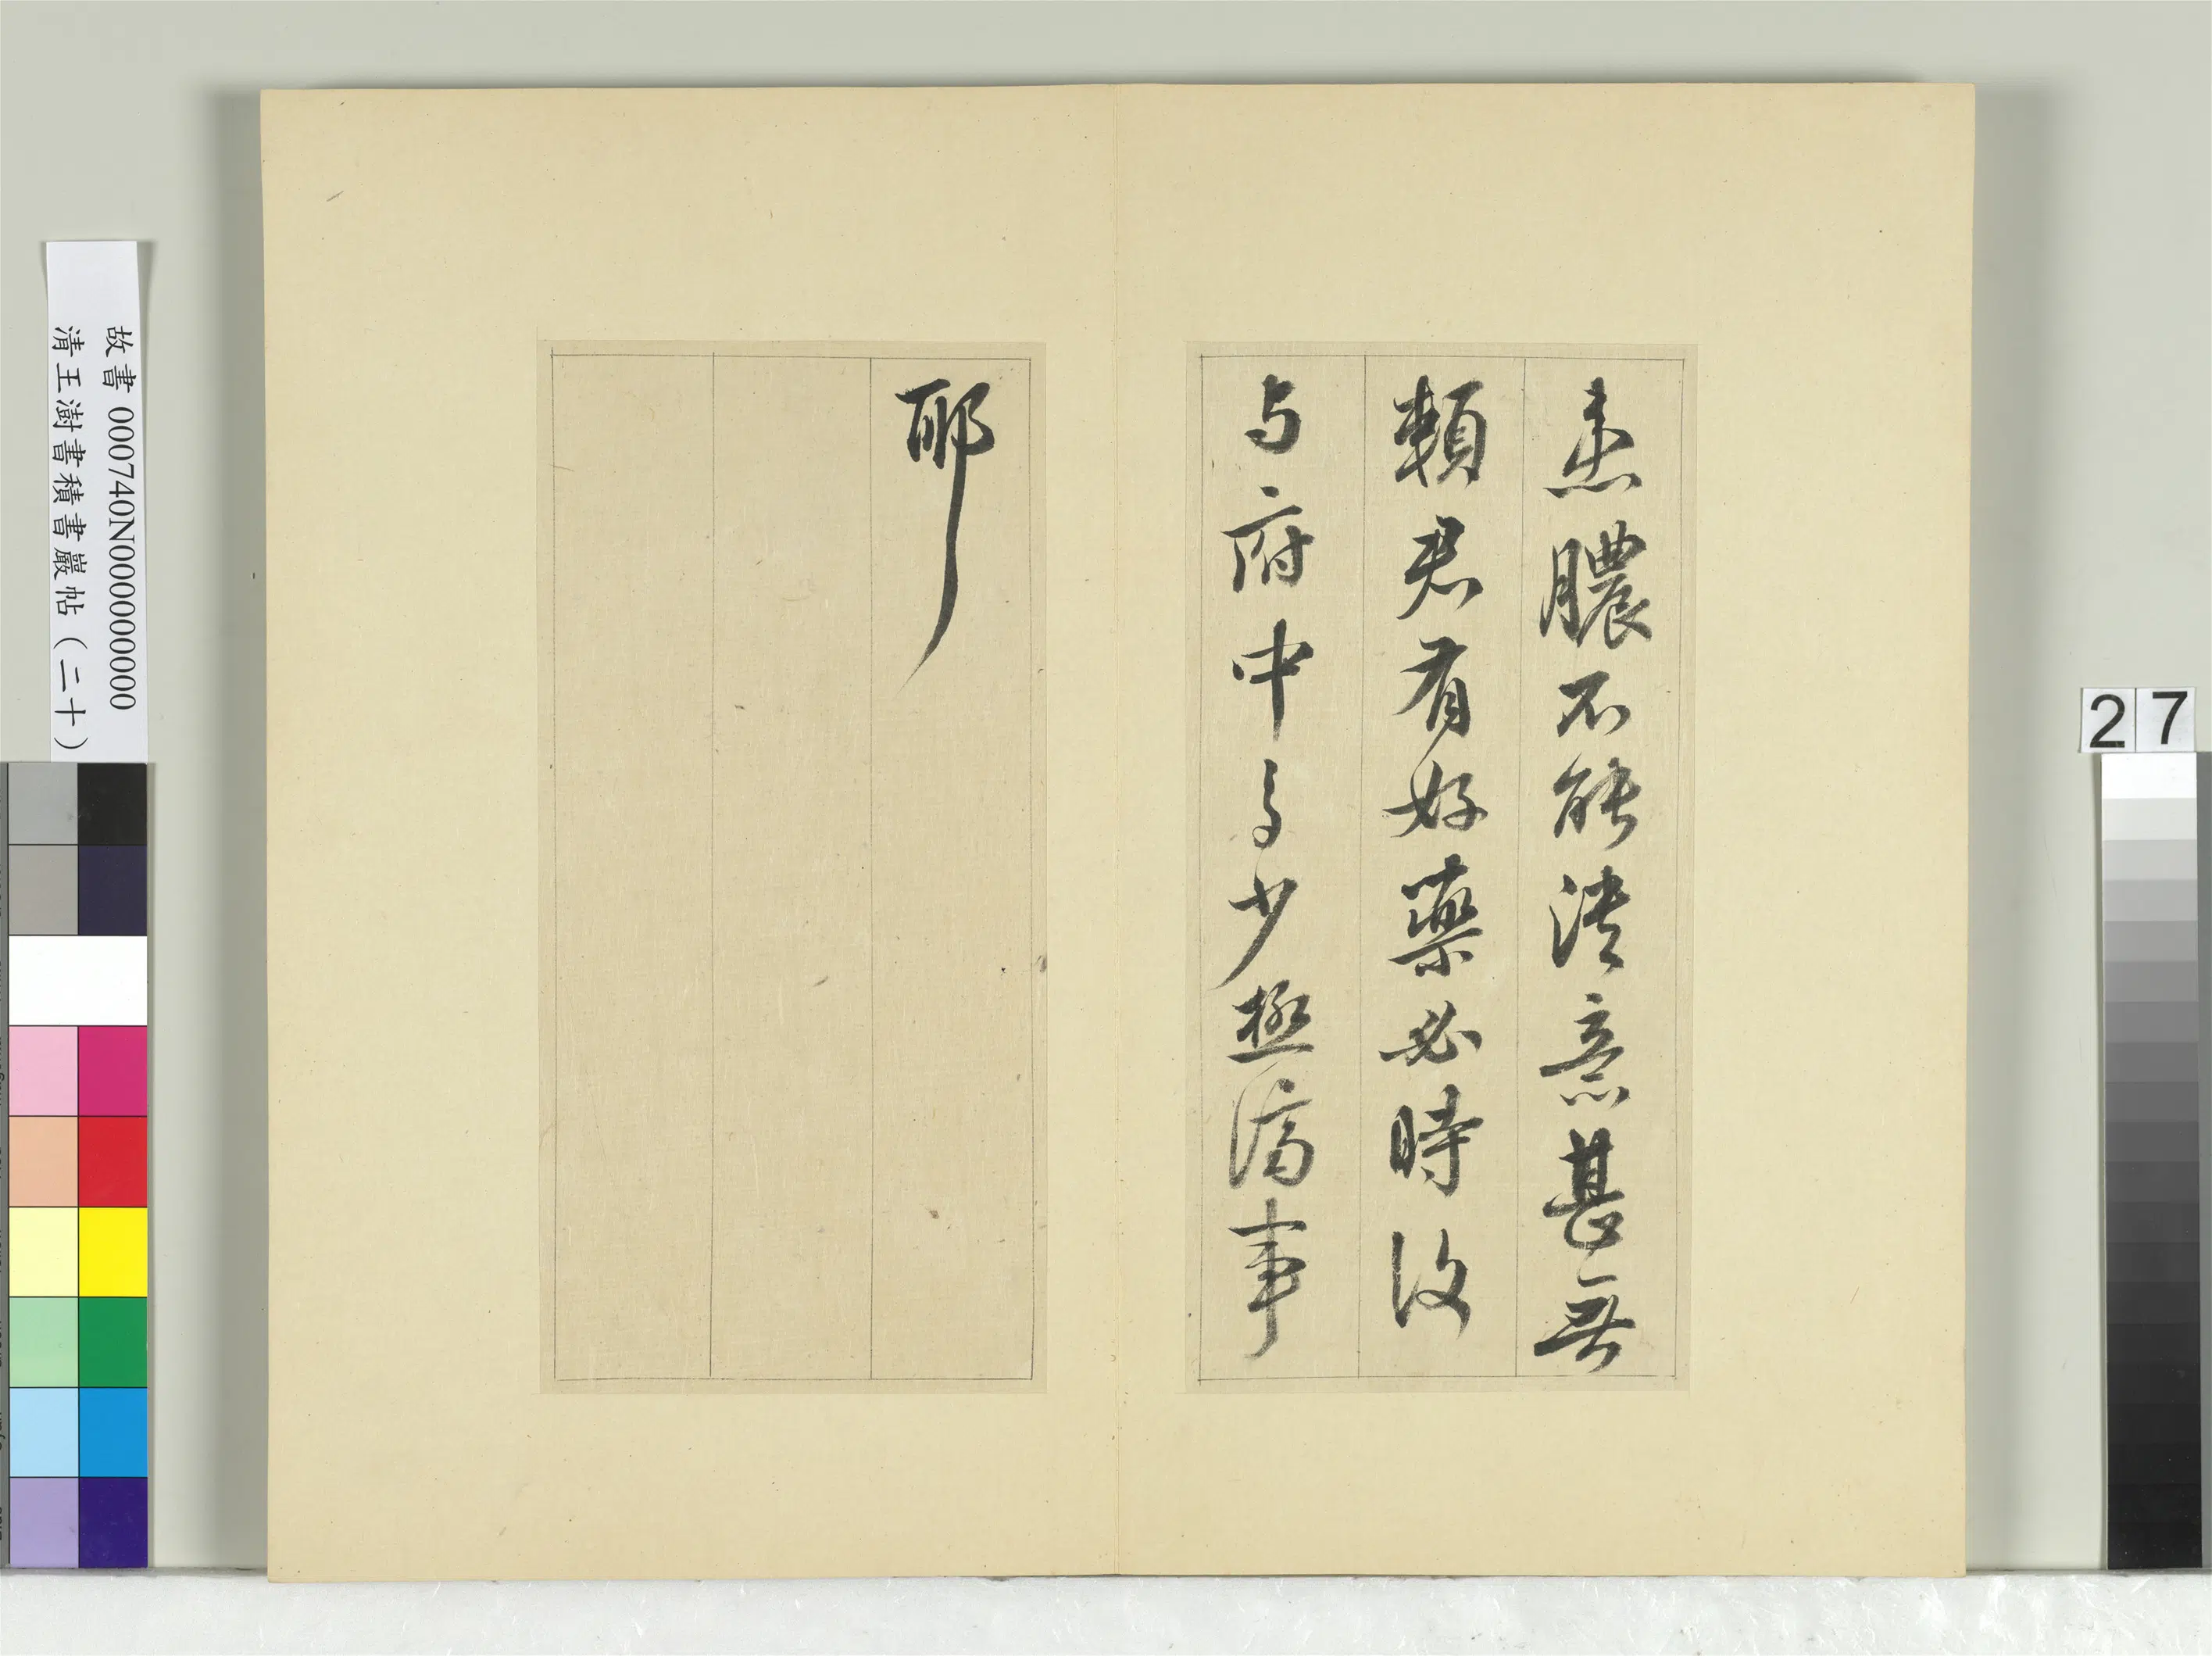 患膿不能潰意甚無
賴君有好藥必時復
与府中多少極濟事
耶
故書 000740N000000000
清王澍書積書巖帖（二十）
27